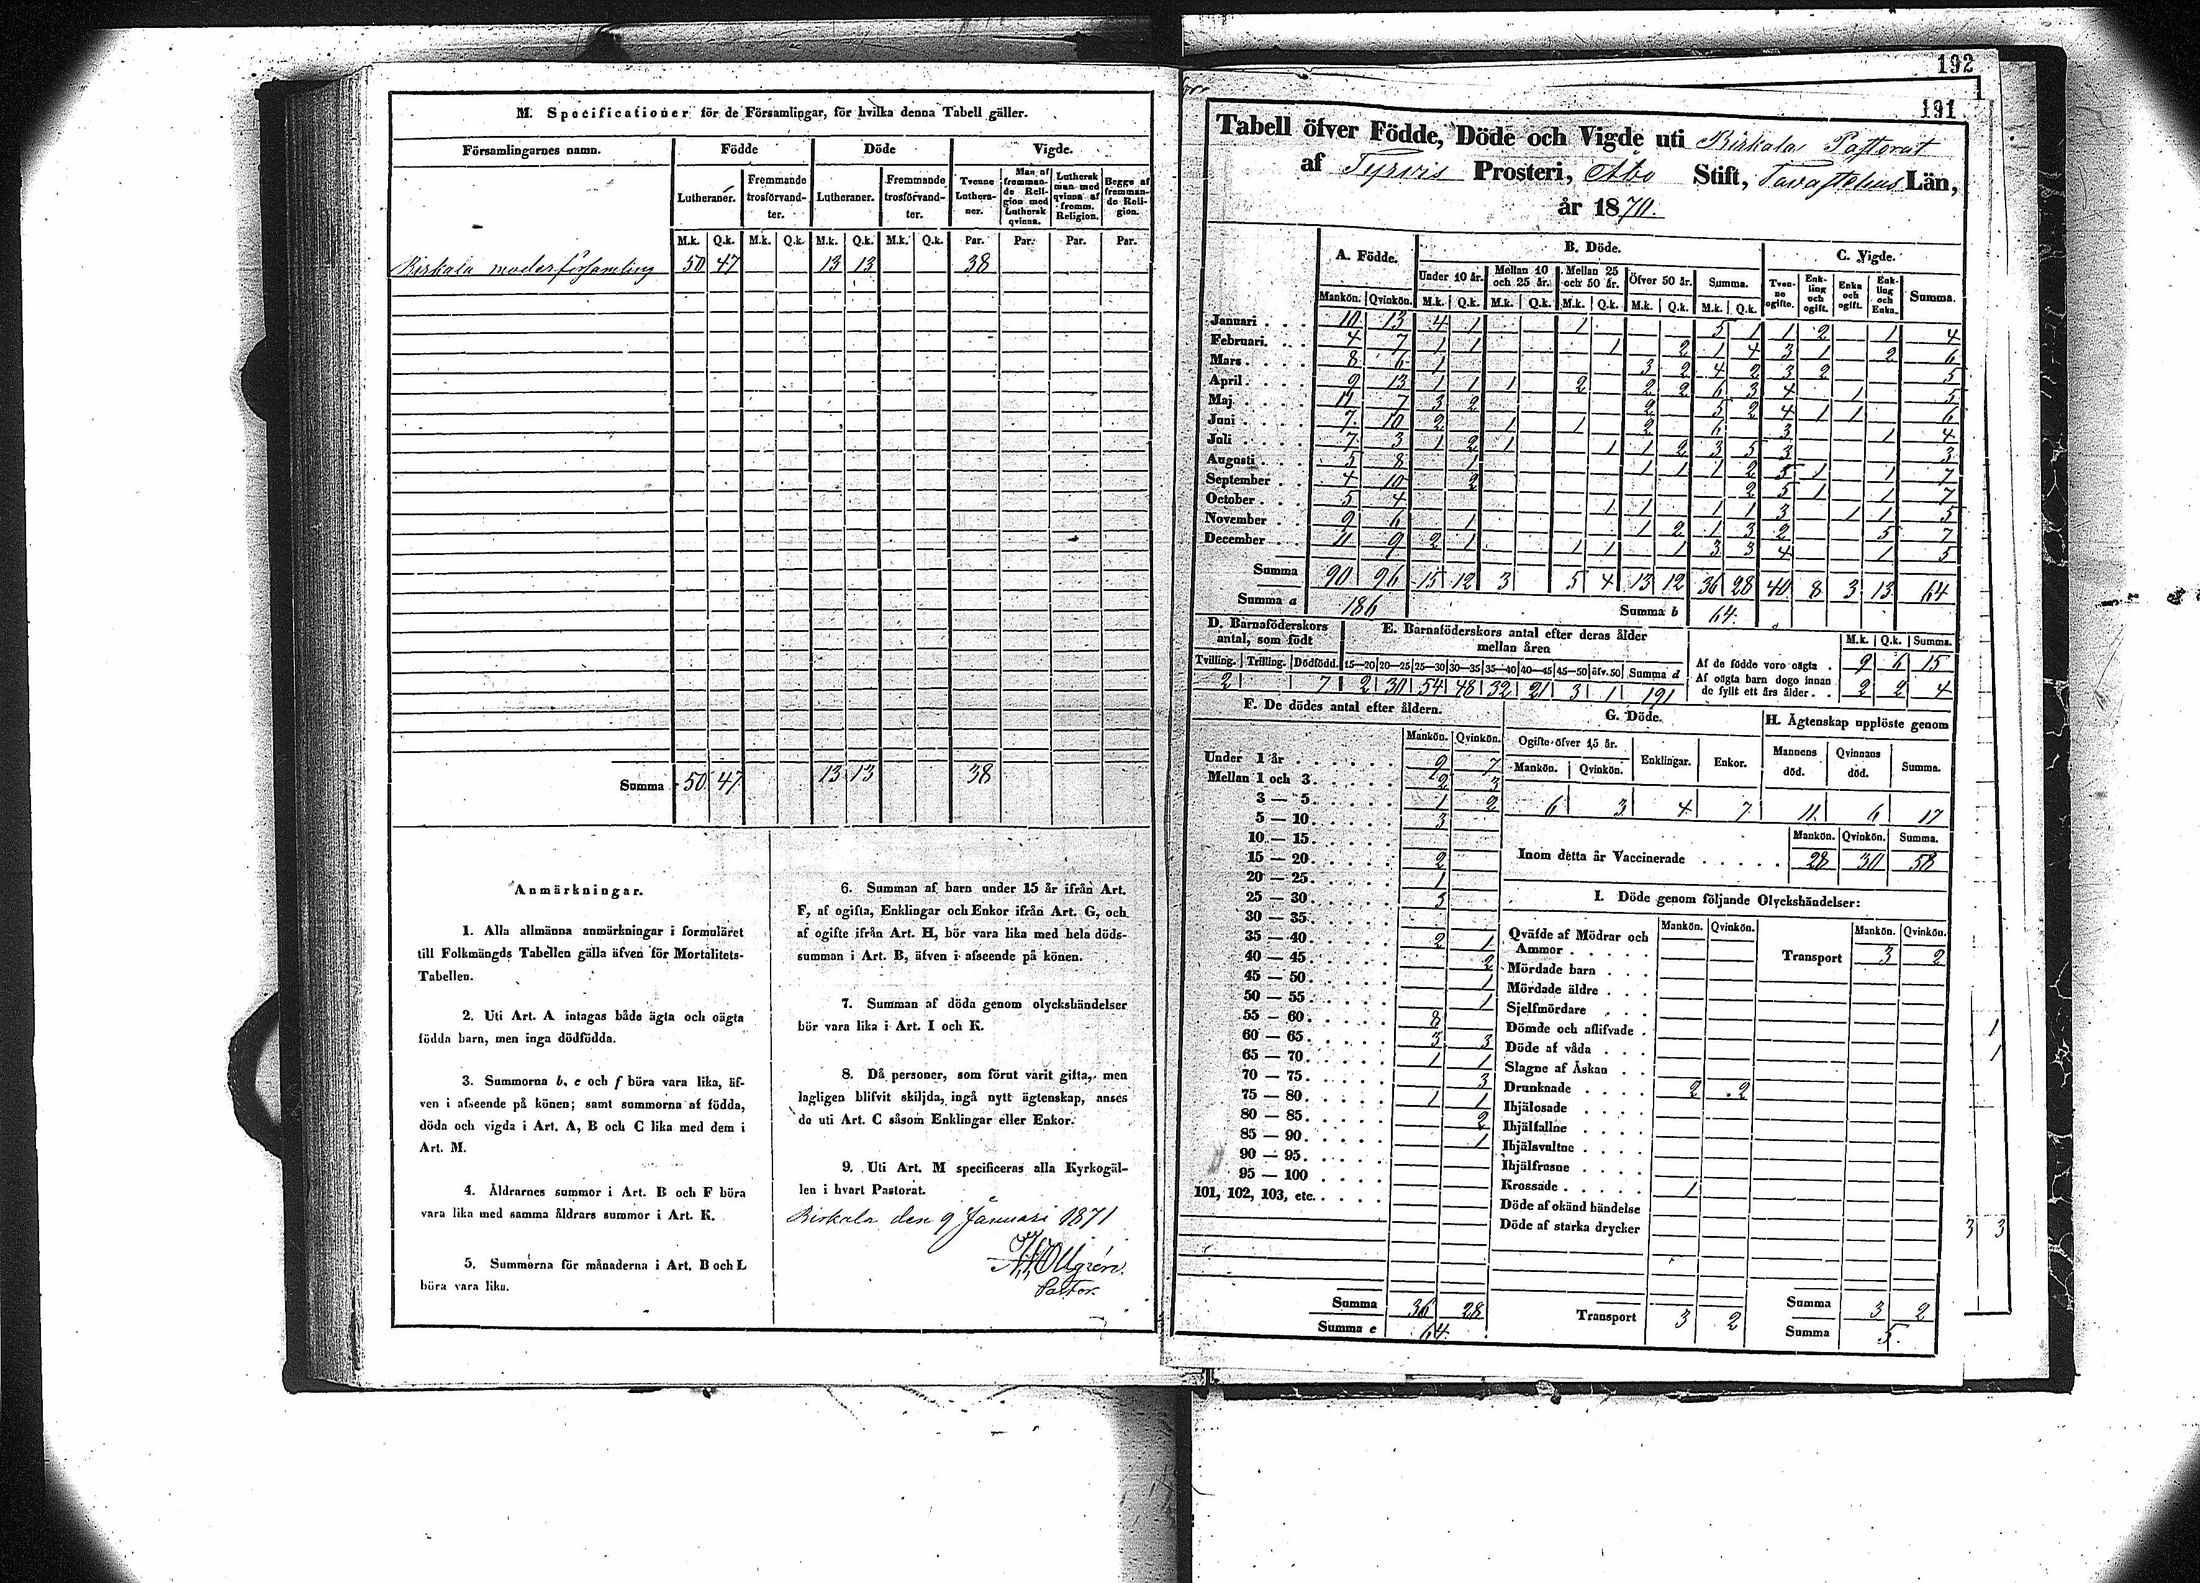 M. Specificationer för de Församlingar, för hvilka denna Tabell gäller.
Församlingarnes namn. Födde Döde Vigde.
Lutheraner. Fremmande trosförvandter. Lutheraner. Fremmande trosförvandter. Tvenne Lutheraner. Man af fremmande Religion med Luthersk qvinna. Luthersk man med qvinna af fremm. Religion. Begge af fremmande Religion.
M.k. Q.k. M.k. Q.k. M.k. Q.k. M.k. Q.k. Par. Par. Par. Par.
Birkala moderförsamling 50 47 13 13 38
Summa 50 47 13 13 38
Anmärkningar.
1. Alla allmänna anmärkningar i formuläret
till Folkmängds Tabellen gälla äfven för Mortalitets-
Tabellen.
2. Uti Art. A intagas både ägta och oägta
födda barn, men inga dödfödda.
3. Summorna b, e och f böra vara lika, äf-
ven i afseende på könen; samt summorna af födda,
döda och vigda i Art. A, B och C lika med dem i
Art. M.
4. Åldrarnes summor i Art. B och F böra
vara lika med samma åldrars summor i Art. K.
5. Summorna för månaderna i Art. B och L
böra vara lika.
6. Summan af barn under 15 år ifrån Art.
F, af ogifta, Enklingar och Enkor ifrån Art. G, och
af ogifte ifrån Art. H, bör vara lika med hela döds-
summan i Art. B, äfven i afseende på könen.
7. Summan af döda genom olyckshändelser
bör vara lika i Art. I och K.
8. Då personer, som förut varit gifta, men
lagligen blifvit skiljda, ingå nytt ägtenskap, anses
de uti Art. C såsom Enklingar eller Enkor.
9. Uti Art. M specificeras alla Kyrkogäl-
len i hvart Pastorat.
Birkala den 9 Januari 1871
Pastor.
192
1
191
Tabell öfver Födde, Döde och Vigde uti Birkala Pastorat
af Tyrvis Prosteri, Åbo Stift, Tavastehus Län,
år 1870.
A. Födde. B. Döde. C. Vigde.
Under 10 år. Mellan 10 och 25 år. Mellan 25 och 50 år. Öfver 50 år. Summa. Tvenne ogifte. Enkling och ogift. Enka och ogift. Enkling och Enka. Summa.
Mankön. Qvinkön. M.k. Q.k. M.k. Q.k. M.k. Q.k. M.k. Q.k. M.k. Q.k.
Januari 10 13 4 1 1 5 1 1 2 1 4
Februari 4 7 1 1 1 2 1 4 3 1 2 6
Mars 8 6 1 3 2 4 2 3 2 5
April 9 13 1 1 1 2 2 2 6 3 4 1 5
Maj 11 7 3 2 2 5 2 4 1 1 6
Juni 7 10 2 1 1 2 6 3 1 4
Juli 7 3 1 2 1 1 1 2 3 5 3 3
Augusti 5 8 1 1 1 1 2 5 1 1 7
September 4 10 2 2 5 1 1 7
October 5 4 1 1 1 1 3 1 1 5
November 9 6 1 1 2 1 3 2 5 7
December 11 9 2 1 1 1 1 3 3 4 1 5
Summa 90 96 15 12 3 5 4 13 12 36 28 40 8 3 13 64
Summa a 186 Summa b 64.
D. Barnaföderskors antal, som födt
Tvilling. Trilling. Dödfödd.
2 7
E. Barnaföderskors antal efter deras ålder mellan åren
15—20 20—25 25—30 30—35 35—40 40—45 45—50 öfv. 50 Summa d
2 30 54 48 32 21 3 1 191
M.k. Q.k. Summa.
Af de födde voro oägta 9 6 15
Af oägta barn dogo innan de fyllt ett års ålder 2 2 4
F. De dödes antal efter åldern.
Mankön. Qvinkön.
Under 1 år 9 7
Mellan 1 och 3 2 3
3 — 5 1 2
5 — 10 3
10 — 15
15 — 20 2
20 — 25 1
25 — 30 3
30 — 35
35 — 40 2 1
40 — 45 2
45 — 50 1
50 — 55 1
55 — 60 8
60 — 65 3 3
65 — 70 1 1
70 — 75 3
75 — 80 1 1
80 — 85 2
85 — 90 1
90 — 95
95 — 100
101, 102, 103, etc.
Summa 36 28
Summa e 64.
G. Döde.
Ogifte öfver 15 år. Enklingar. Enkor.
Mankön. Qvinkön.
6 3 4 7
H. Ägtenskap upplöste genom
Mannens död. Qvinnans död. Summa.
11 6 17
Mankön. Qvinkön. Summa.
Inom detta år Vaccinerade 28 30 58
I. Döde genom följande Olyckshändelser:
Mankön. Qvinkön. Mankön. Qvinkön.
Qväfde af Mödrar och Ammor Transport 3 2
Mördade barn
Mördade äldre
Sjelfmördare
Dömde och aflifvade
Döde af våda
Slagne af Åskan
Drunknade 2 2
Ihjälosade
Ihjälfallne
Ihjälsvultne
Ihjälfrusne
Krossade 1
Döde af okänd händelse
Döde af starka drycker
Transport 3 2 Summa 3 2
Summa 5.
1
1
3 3